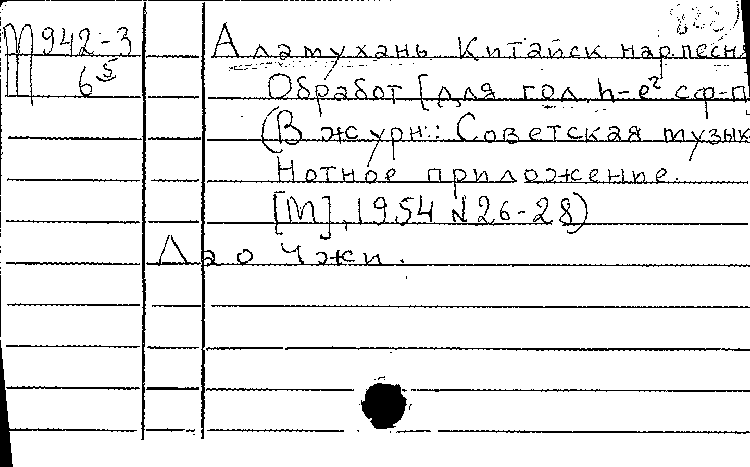 M 942-3
6 5
Аламухань Китайск нар песня
Обработ [для гол. h-e² с ф-п]
(В журн.: Советская музык
Нотное приложение.
[М], 1954 №26-28)
Лао Чжи.